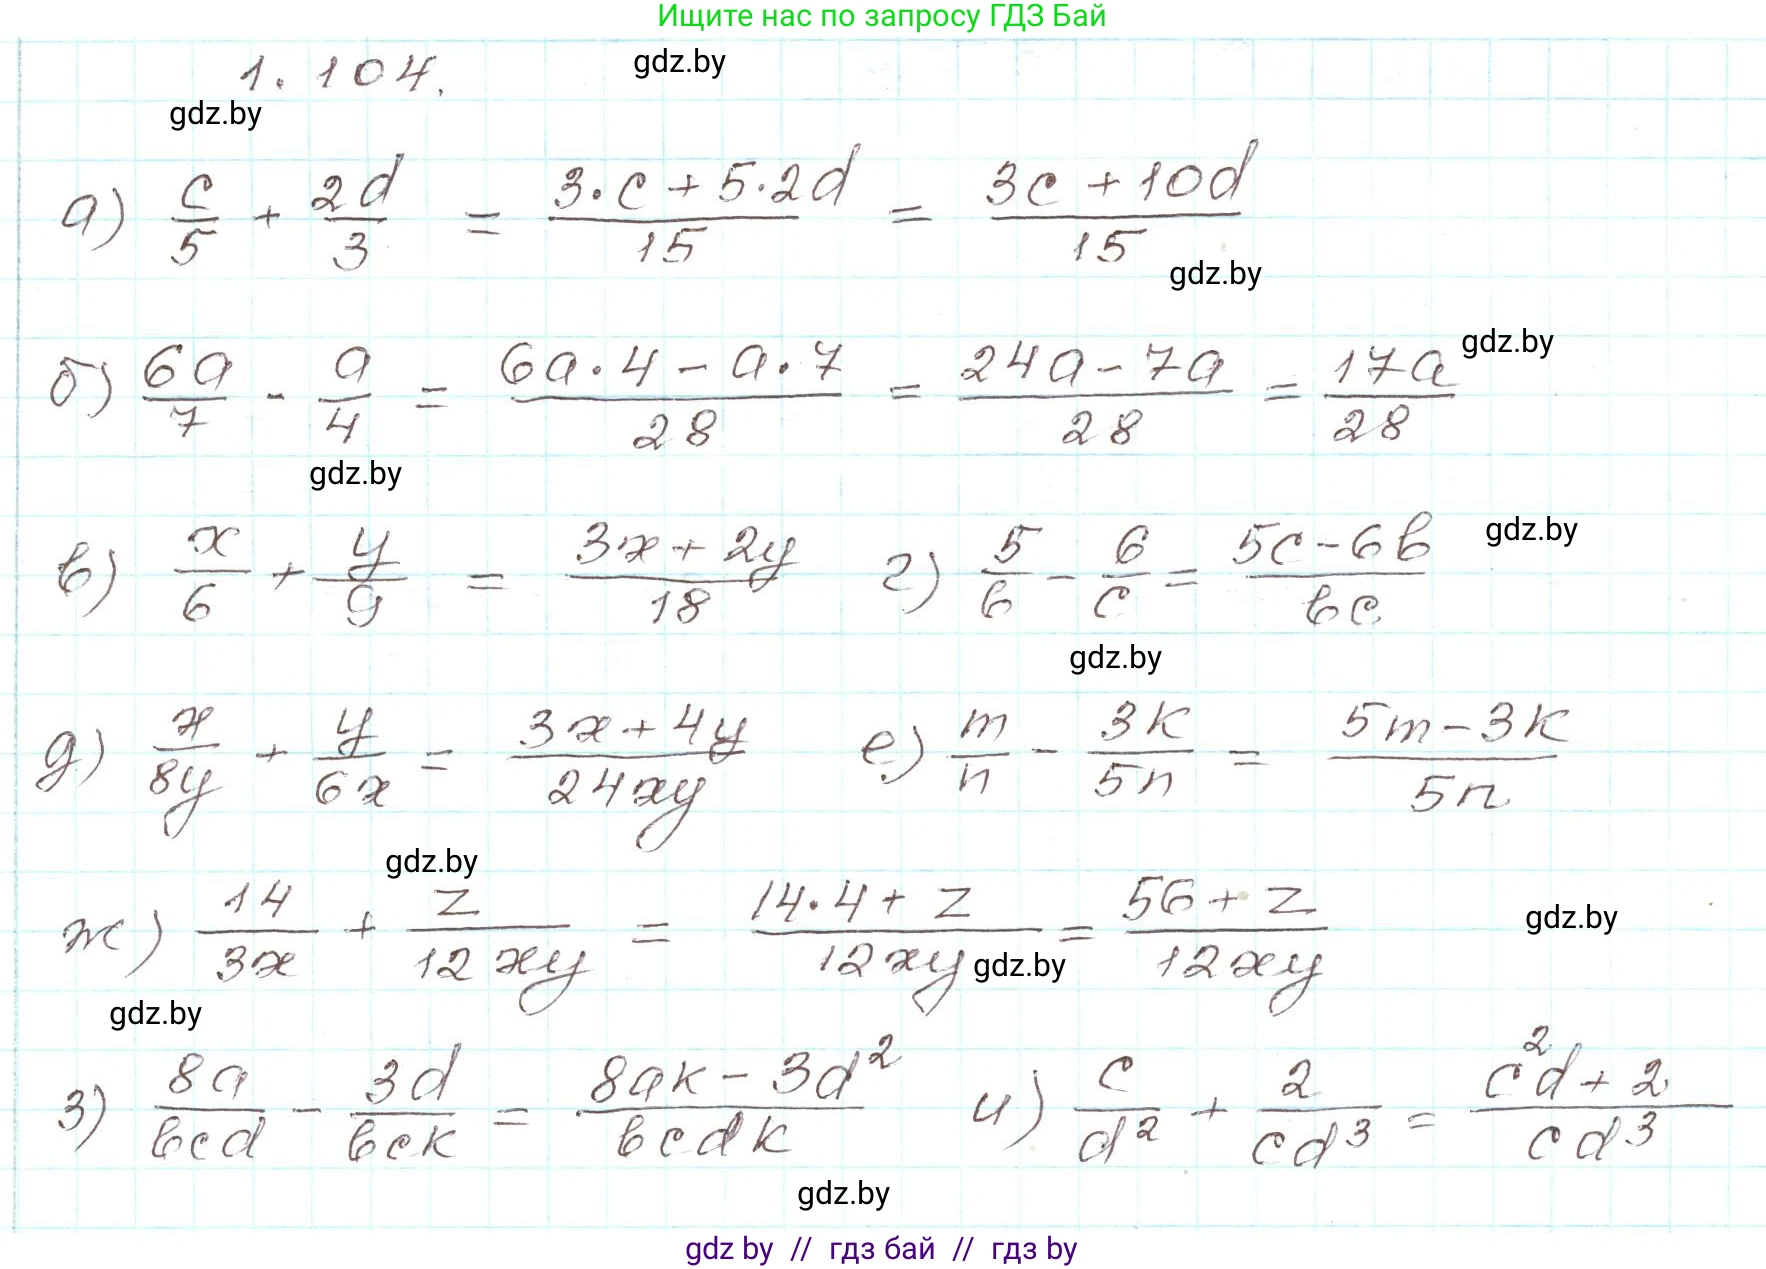 Ищите нас по запросу ГДЗ Бай
1.104.
gdz.by
gdz.by
а) c/5 + 2d/3 = (3·c+5·2d)/15 = (3c+10d)/15
gdz.by
б) 6a/7 - a/4 = (6a·4-a·7)/28 = (24a-7a)/28 = 17a/28
gdz.by
gdz.by
в) x/6 + y/9 = (3x+2y)/18 г) 5/b - 6/c = (5c-6b)/bc
gdz.by
gdz.by
д) x/8y + y/6x = (3x+4y)/24xy е) m/n - 3k/5n = (5m-3k)/5n
gdz.by
ж) 14/3x + z/12xy = (14·4+z)/12xy = (56+z)/12xy
gdz.by
gdz.by
gdz.by
з) 8a/bcd - 3d/bck = (8ak-3d²)/bcdk и) c/d² + 2/cd³ = (c²d+2)/cd³
gdz.by
gdz by // гдз бай // гдз by